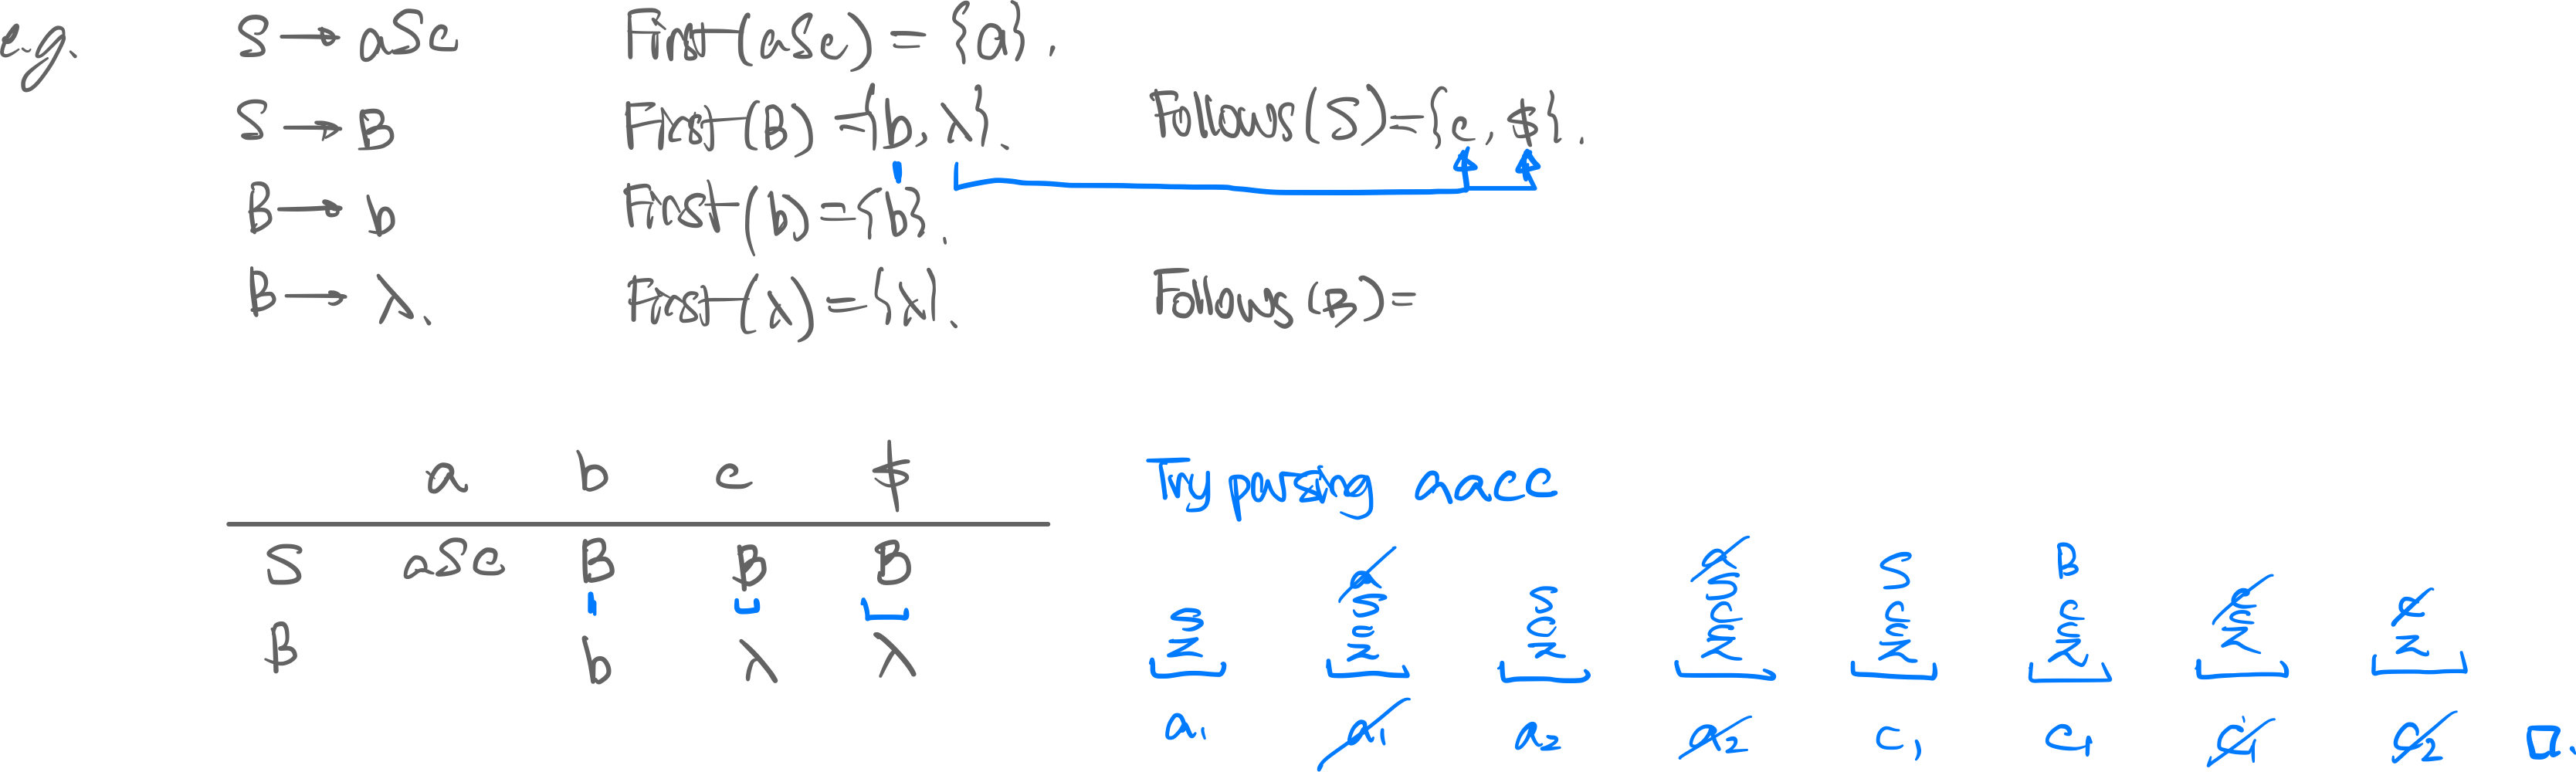 e.g. S → aSc First(aSc) = {a}.
S → B First(B) = {b, λ}. Follows(S) = {c, $}.
B → b First(b) = {b}.
B → λ. First(λ) = {λ}. Follows(B) =
a b c $
S aSc B B B
B b λ λ
Try parsing aacc
S z
a S c z
S c z
a S c c z
S c c z
B c c z
c c z
c z
a₁ a₁ a₂ a₂ c₁ c₁ c₁ c₂ □.